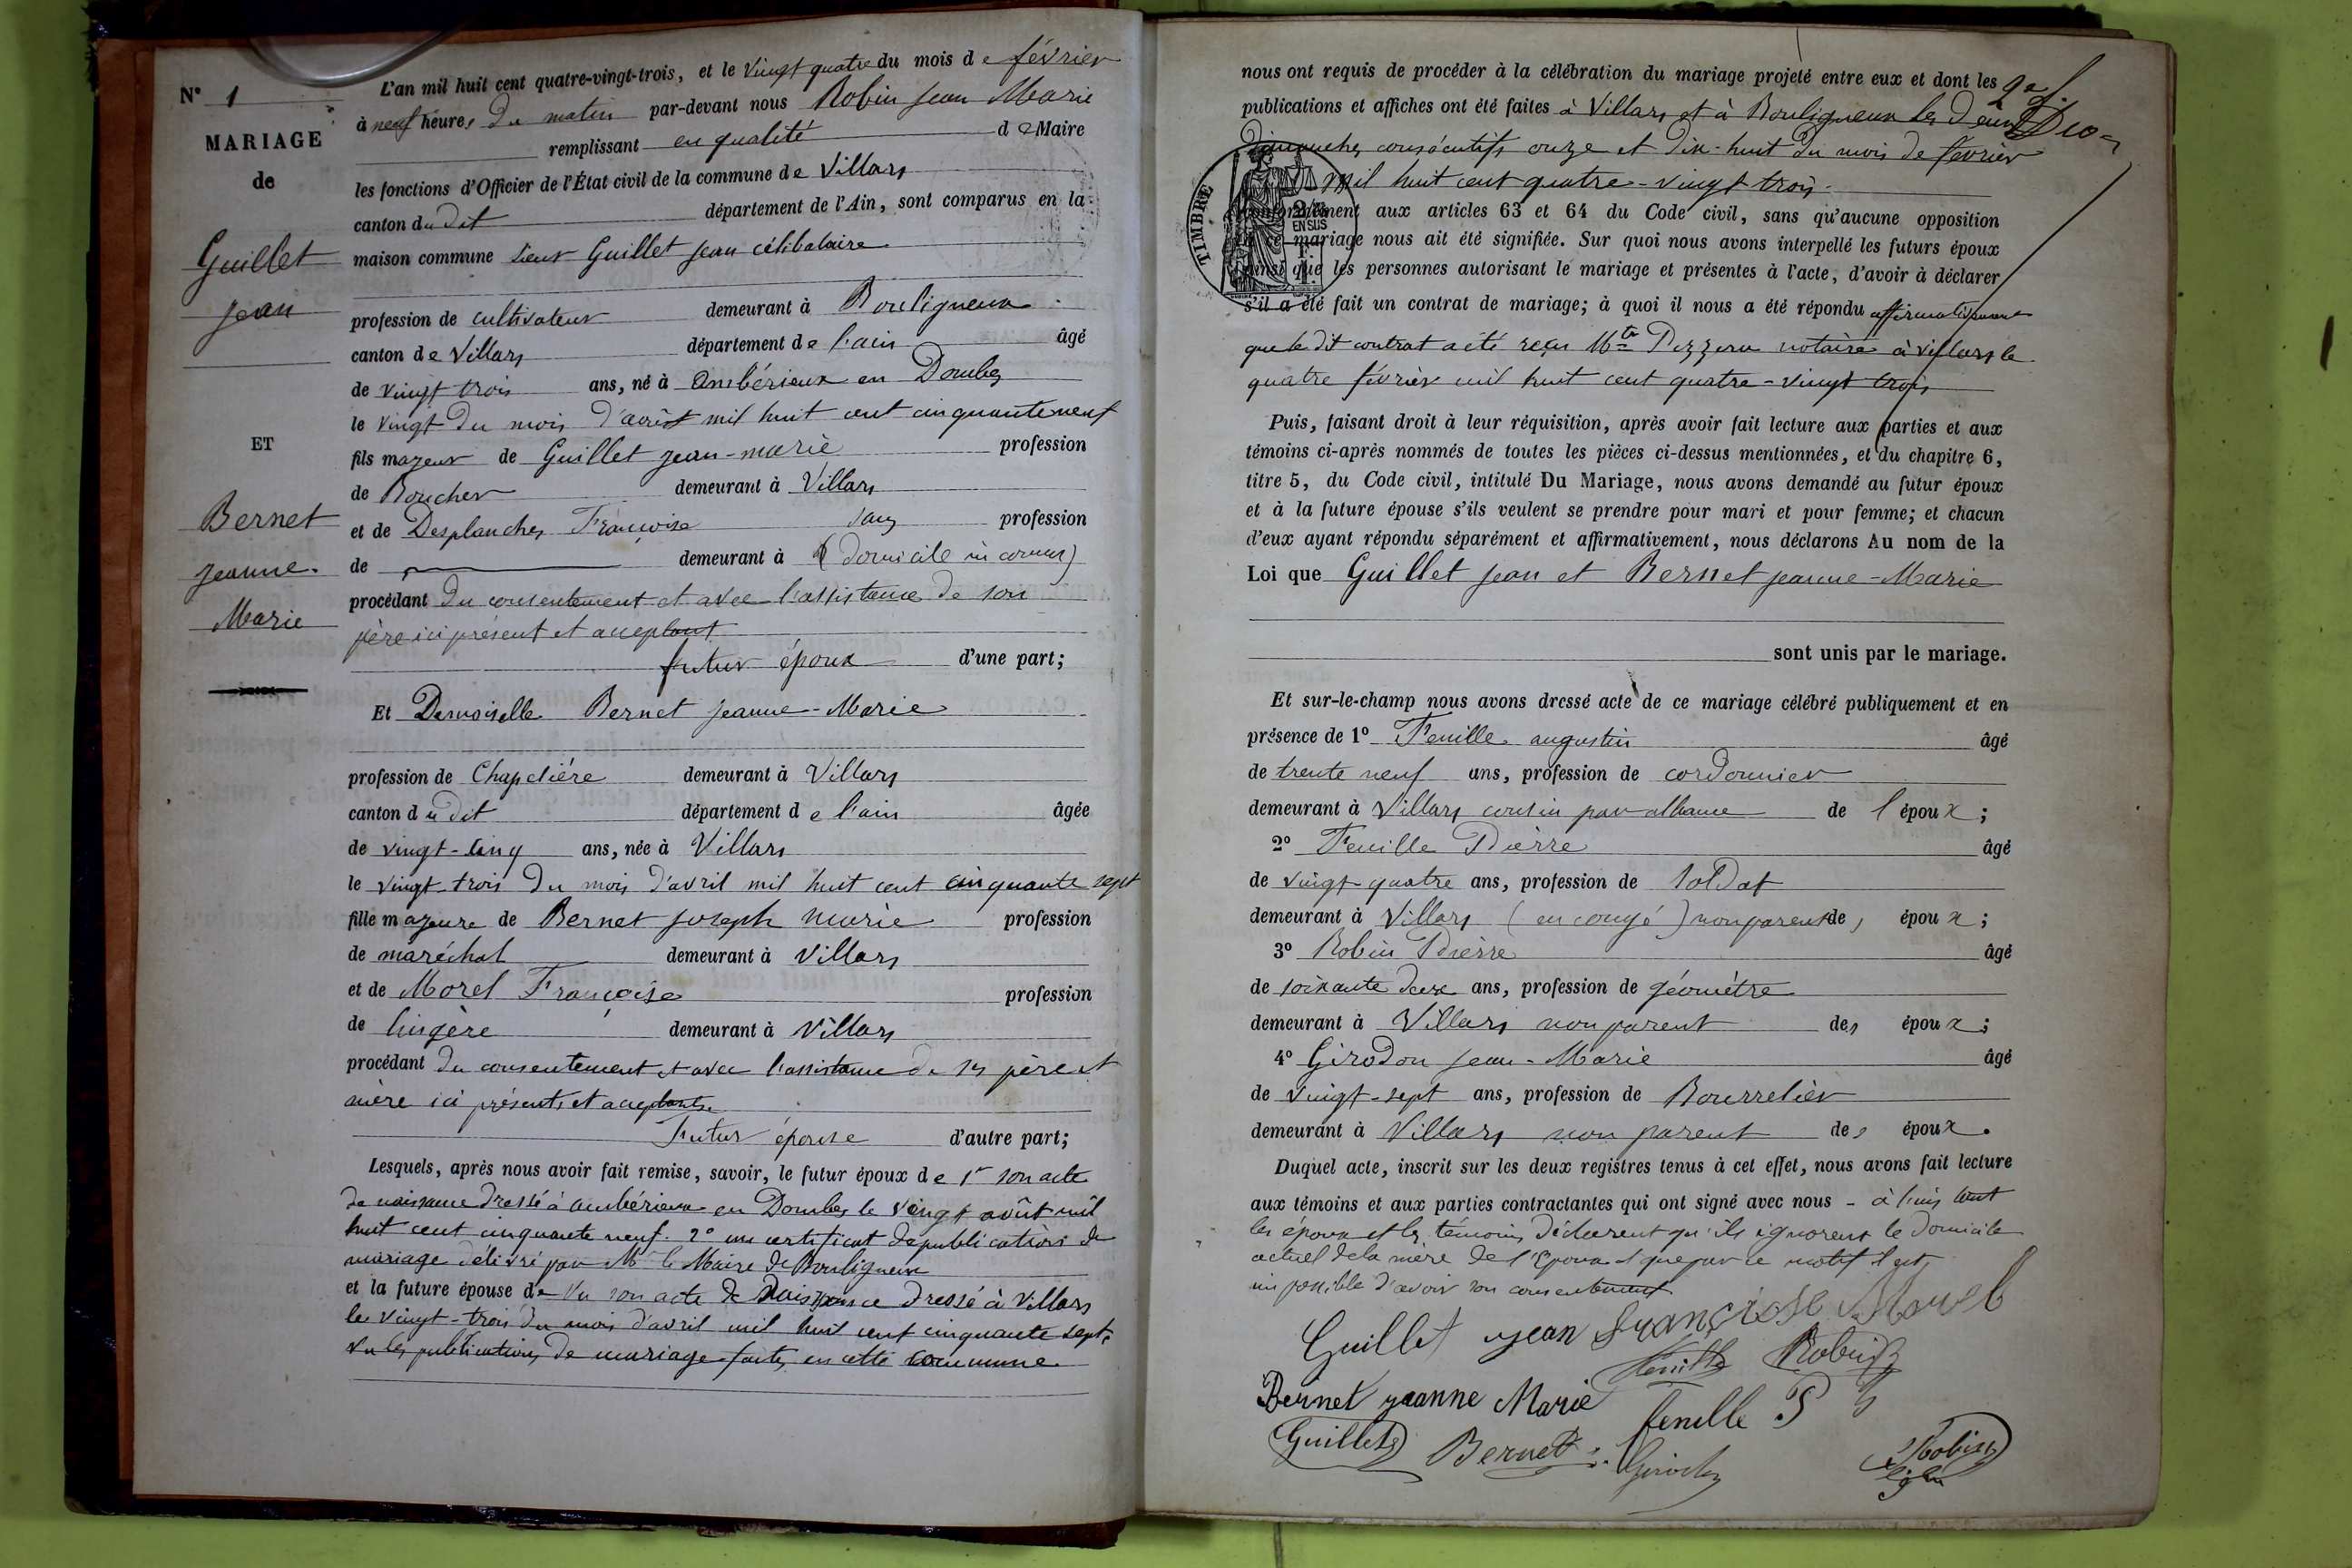 N° 1
MARIAGE
de
Guillet
Jean
ET
Bernet
Jeanne.
Marie
L'an mil huit cent quatre-vingt-trois, et le vingt quatre du mois de février
à neuf heures du matin par-devant nous Robin Jean Marie
remplissant en qualité de Maire
les fonctions d'Officier de l'État civil de la commune de Villars
canton du dit département de l'Ain, sont comparus en la
maison commune sieur Guillet Jean célibataire
profession de cultivateur demeurant à Bouligneux
canton de Villars département de l'ain âgé
de vingt trois ans, né à Ambérieux en Dombes
le vingt du mois d'août mil huit cent cinquante neuf
fils majeur de Guillet Jean-marie profession
de Boucher demeurant à Villars
et de Desplanches Françoise sans profession
de demeurant à (domicile inconnu)
procédant du consentement et avec l'assistance de son
père ici présent et acceptant
futur époux d'une part;
Et Demoiselle Bernet Jeanne-Marie
profession de Chapelière demeurant à Villars
canton du dit département de l'ain âgée
de vingt-cinq ans, née à Villars
le vingt-trois du mois d'avril mil huit cent cinquante sept
fille majeure de Bernet Joseph Marie profession
de maréchal demeurant à Villars
et de Morel Françoise profession
de lingère demeurant à Villars
procédant du consentement et avec l'assistance de ses père et
mère ici présents et acceptants
futur épouse d'autre part;
Lesquels, après nous avoir fait remise, savoir, le futur époux de 1° son acte
de naissance dressé à ambérieux en Dombes le vingt août mil
huit cent cinquante neuf. 2° un certificat de publication de
mariage délivré par Mr le Maire de Bouligneux
et la future épouse de Vu son acte de Naissance dressé à Villars
le vingt-trois du mois d'avril mil huit cent cinquante sept.
Vu les publications de mariage faites en cette commune
nous ont requis de procéder à la célébration du mariage projeté entre eux et dont les
publications et affiches ont été faites à Villars et à Bouligneux les deux
dimanches consécutifs onze et dix-huit du mois de février
mil huit cent quatre-vingt trois.
conformément aux articles 63 et 64 du Code civil, sans qu'aucune opposition
à ce mariage nous ait été signifiée. Sur quoi nous avons interpellé les futurs époux
ainsi que les personnes autorisant le mariage et présentes à l'acte, d'avoir à déclarer
s'il a été fait un contrat de mariage; à quoi il nous a été répondu affirmativement
que le dit contrat a été reçu Mtre Pezzera notaire à villars le
quatre février mil huit cent quatre-vingt trois
TIMBRE
EN SUS
Puis, faisant droit à leur réquisition, après avoir fait lecture aux parties et aux
témoins ci-après nommés de toutes les pièces ci-dessus mentionnées, et du chapitre 6,
titre 5, du Code civil, intitulé Du Mariage, nous avons demandé au futur époux
et à la future épouse s'ils veulent se prendre pour mari et pour femme; et chacun
d'eux ayant répondu séparément et affirmativement, nous déclarons Au nom de la
Loi que Guillet Jean et Bernet Jeanne-Marie
sont unis par le mariage.
Et sur-le-champ nous avons dressé acte de ce mariage célébré publiquement et en
présence de 1° Feuille augustin âgé
de trente neuf ans, profession de cordonnier
demeurant à Villars cousin par alliance de l'époux;
2° Feuille Pierre âgé
de vingt quatre ans, profession de soldat
demeurant à Villars (en congé) non parent des époux;
3° Robin Pierre âgé
de soixante deux ans, profession de géomètre
demeurant à Villars non parent des époux;
4° Girodon Jean-Marie âgé
de vingt-sept ans, profession de Bourrelier
demeurant à Villars non parent des époux.
Duquel acte, inscrit sur les deux registres tenus à cet effet, nous avons fait lecture
aux témoins et aux parties contractantes qui ont signé avec nous
les époux et les témoins déclarent qu'ils ignorent le domicile
actuel de la mère de l'époux et que par ce motif il est
impossible d'avoir son consentement
Guillet Jean Françoise Morel
Feuille Robin
Bernet Jeanne Marie feuille P
Guillet Bernet Girodon Robin